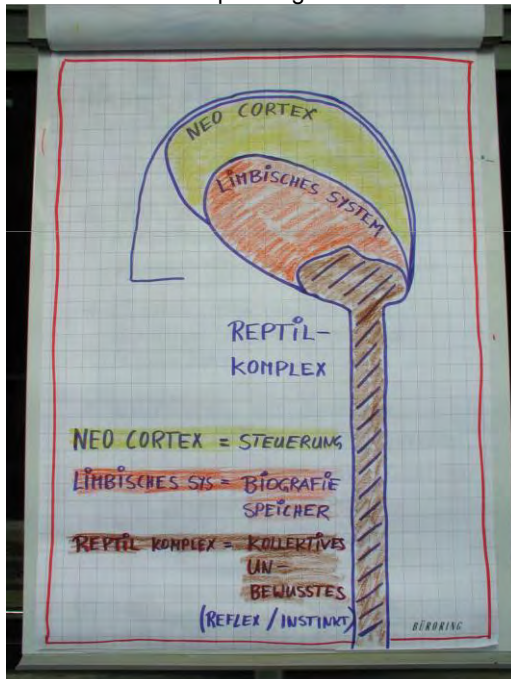 NEO CORTEX
LIMBISCHES SYSTEM
REPTIL-
KOMPLEX
NEO CORTEX = STEUERUNG
LIMBISCHES SYS = BIOGRAFIE
SPEICHER
REPTIL KOMPLEX = KOLLEKTIVES
UN-
BEWUSSTES
(REFLEX / INSTINKT)
BÜRORING